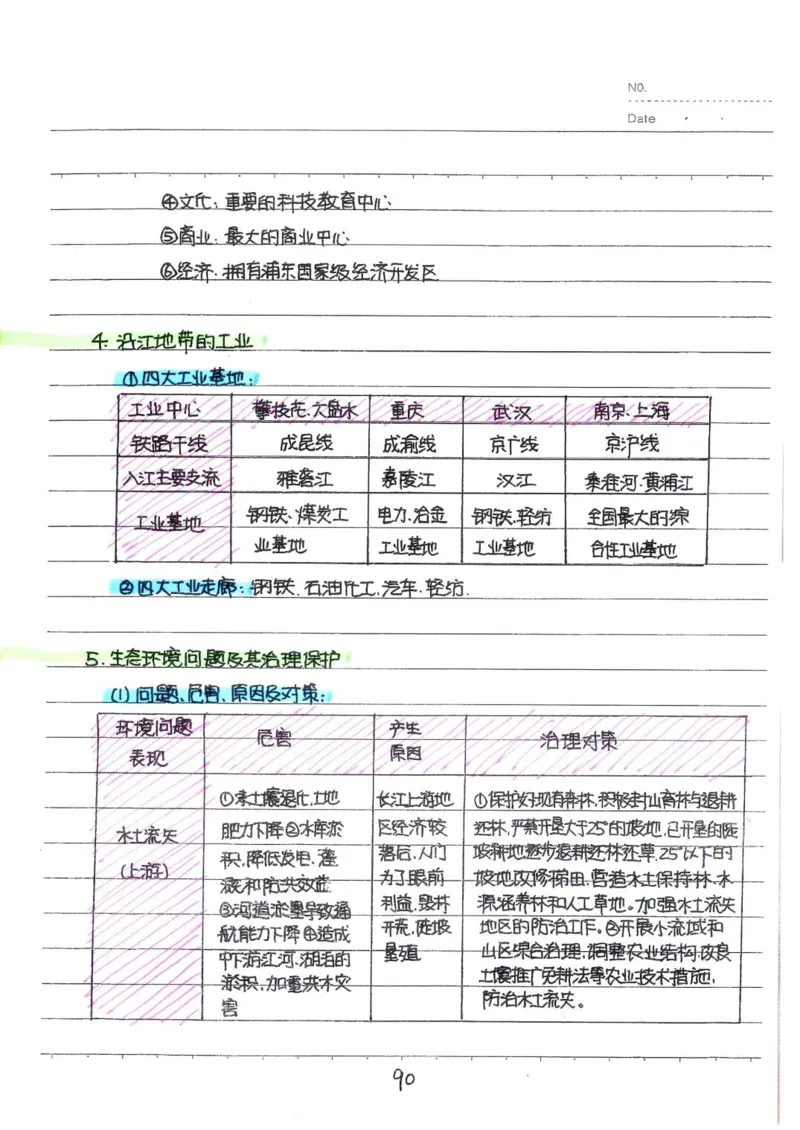 NO.
Date
④文化：重要的科技教育中心
⑤商业：最大的商业中心
⑥经济：拥有浦东国家级经济开发区
4. 沿江地带的工业
①四大工业基地：
工业中心 攀枝花、六盘水 重庆 武汉 南京、上海
铁路干线 成昆线 成渝线 京广线 京沪线
入江主要支流 雅砻江 嘉陵江 汉江 秦淮河、黄浦江
工业基地 钢铁、煤炭工 电力、冶金 钢铁、轻纺 全国最大的综
业基地 工业基地 工业基地 合性工业基地
②四大工业走廊：钢铁、石油化工、汽车、轻纺.
5. 生态环境问题及其治理保护
(1) 问题、危害、原因及对策：
环境问题 危害 产生 治理对策
表现 原因
水土流失
(上游)
土壤退化，土地
肥力下降②水库淤
积，降低发电、灌
溉和防洪效益
③河道淤塞导致通
航能力下降④造成
中下游江河、湖泊的
淤积，加重洪水灾
害
长江上游地
区经济较
落后，人们
为了眼前
利益，毁林
开荒，陡坡
垦殖
①保护好现有森林，积极封山育林与退耕
还林，严禁开垦大于25°的坡地，已开垦的陡
坡耕地逐步退耕还林还草，25°以下的
坡地改修梯田，营造水土保持林、水
源涵养林和人工草地。加强水土流失
地区的防治工作。②开展小流域和
山区综合治理，调整农业结构，改良
土壤推广免耕法等农业技术措施，
防治水土流失。
90